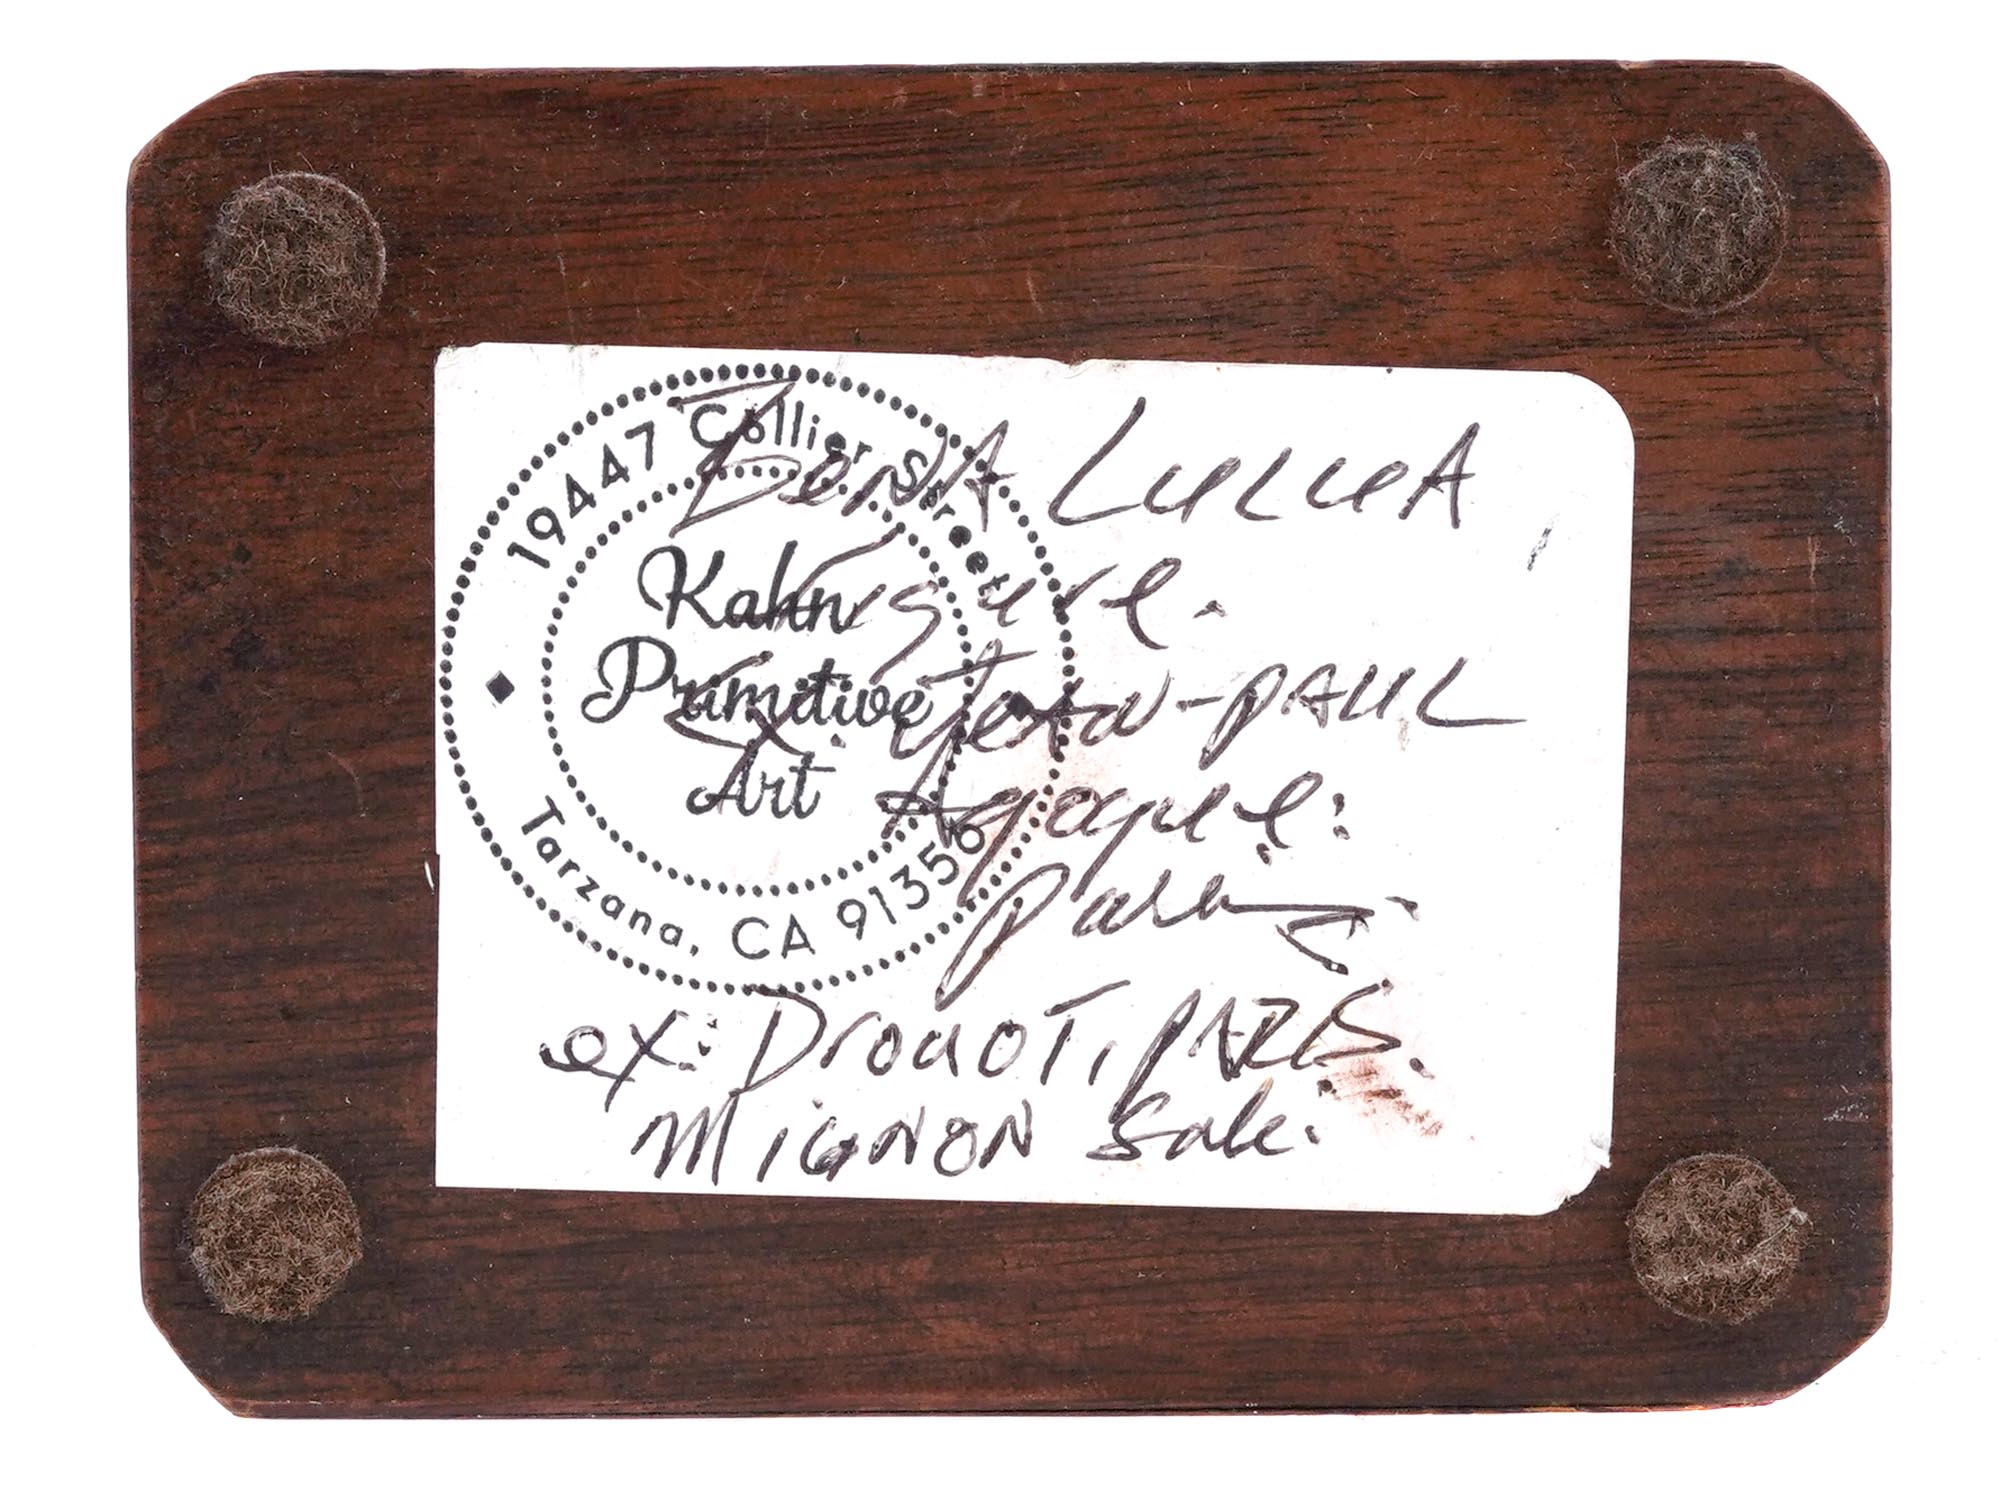 19447 Collier Street
Kahn
Primitive
Art
Tarzana, CA 91356
BENA LULUA
Figure.
ex. Jean-PAUL
Agogue:
Paris.
ex: Drouot, PARIS.
MIGNON Sale.